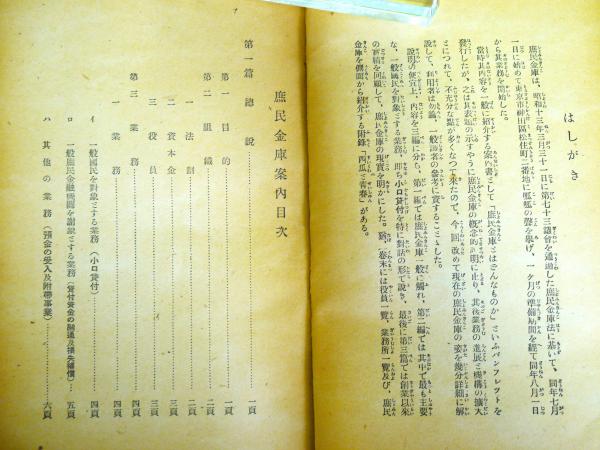 はしがき
庶民金庫は、昭和十三年三月三十一日に第七十三議會を通過した庶民金庫法に基いて、同年七月
一日に始めて東京市神田區松住町二番地に呱呱の聲を擧げ、一ケ月の準備期間を經て同年八月一日
から其業務を開始した。
當時其內容を一般に紹介する案內書として「庶民金庫とはどんなものか」といふパンフレツトを
發行したが、之は其表題の示すやうに庶民金庫の槪念的說明に止り、其後業務の進展と機構の擴大
とにつれて、不充分な點が多くなつて來たので、今囘改めて現在の庶民金庫の姿を幾分詳細に解
說して、利用者は勿論、一般讀者の參考に資することゝした。
說明の便宜上、內容を三編に分ち、第一編では庶民金庫一般に觸れ、第二編では其中で最も主要
な、一般國民を對象とする業務、卽ち小口貸付を特に對話の形で說き、最後に第三編では創業以來
の業績を回顧して、庶民金庫の現實を明かにした。猶、卷末には役員一覽、業務所一覽及び、庶民
金庫を側面から紹介する附錄「西瓜と靑春」がある。
庶民金庫案內目次
第一篇 總說……一頁
第一 目的……一頁
第二 組織……二頁
一 法制……二頁
二 資本金……三頁
三 役員……三頁
第三 業務……四頁
一 業務……四頁
イ 一般國民を對象とする業務(小口貸付)……四頁
ロ 一般庶民金融機關を對象とする業務(貸付資金の融通及損失補償)……五頁
ハ 其他の業務(預金の受入及附帶事業)……六頁